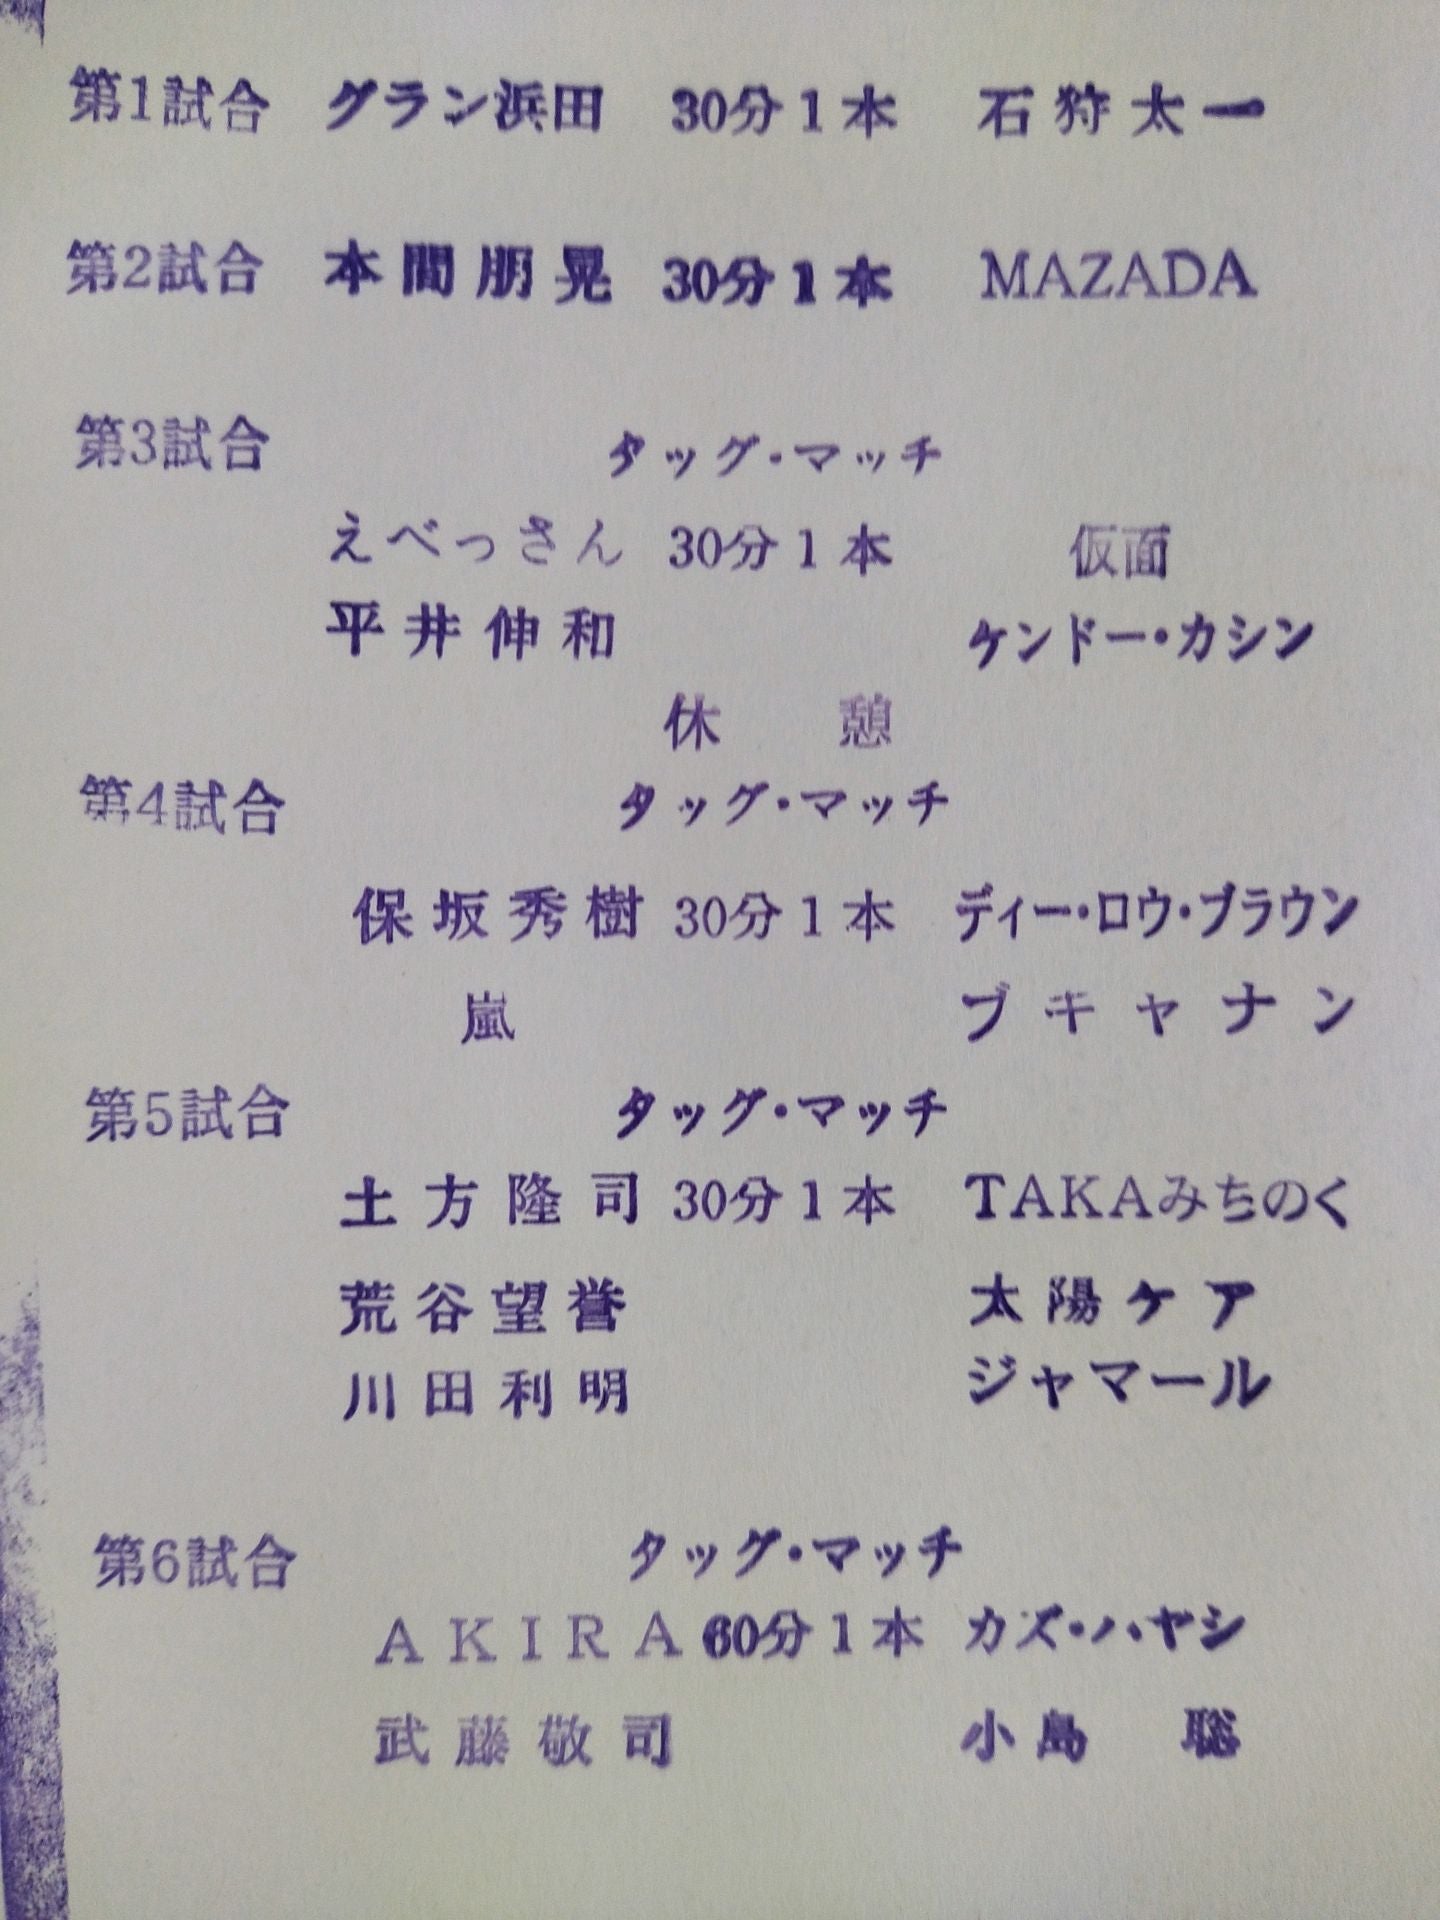 第1試合 グラン浜田 30分1本 石狩太一
第2試合 本間朋晃 30分1本 MAZADA
第3試合 タッグ・マッチ
えべっさん 30分1本 仮面
平井伸和 ケンドー・カシン
休憩
第4試合 タッグ・マッチ
保坂秀樹 30分1本 ディー・ロウ・ブラウン
嵐 ブキャナン
第5試合 タッグ・マッチ
土方隆司 30分1本 TAKAみちのく
荒谷望誉 太陽ケア
川田利明 ジャマール
第6試合 タッグ・マッチ
AKIRA 60分1本 カズ・ハヤシ
武藤敬司 小島聡